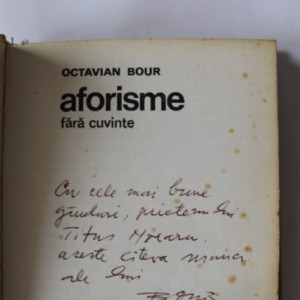 OCTAVIAN BOUR
aforisme
fără cuvinte
Cu cele mai bune
gânduri, prietenului
Titus Moraru,
aceste câteva
ale lui